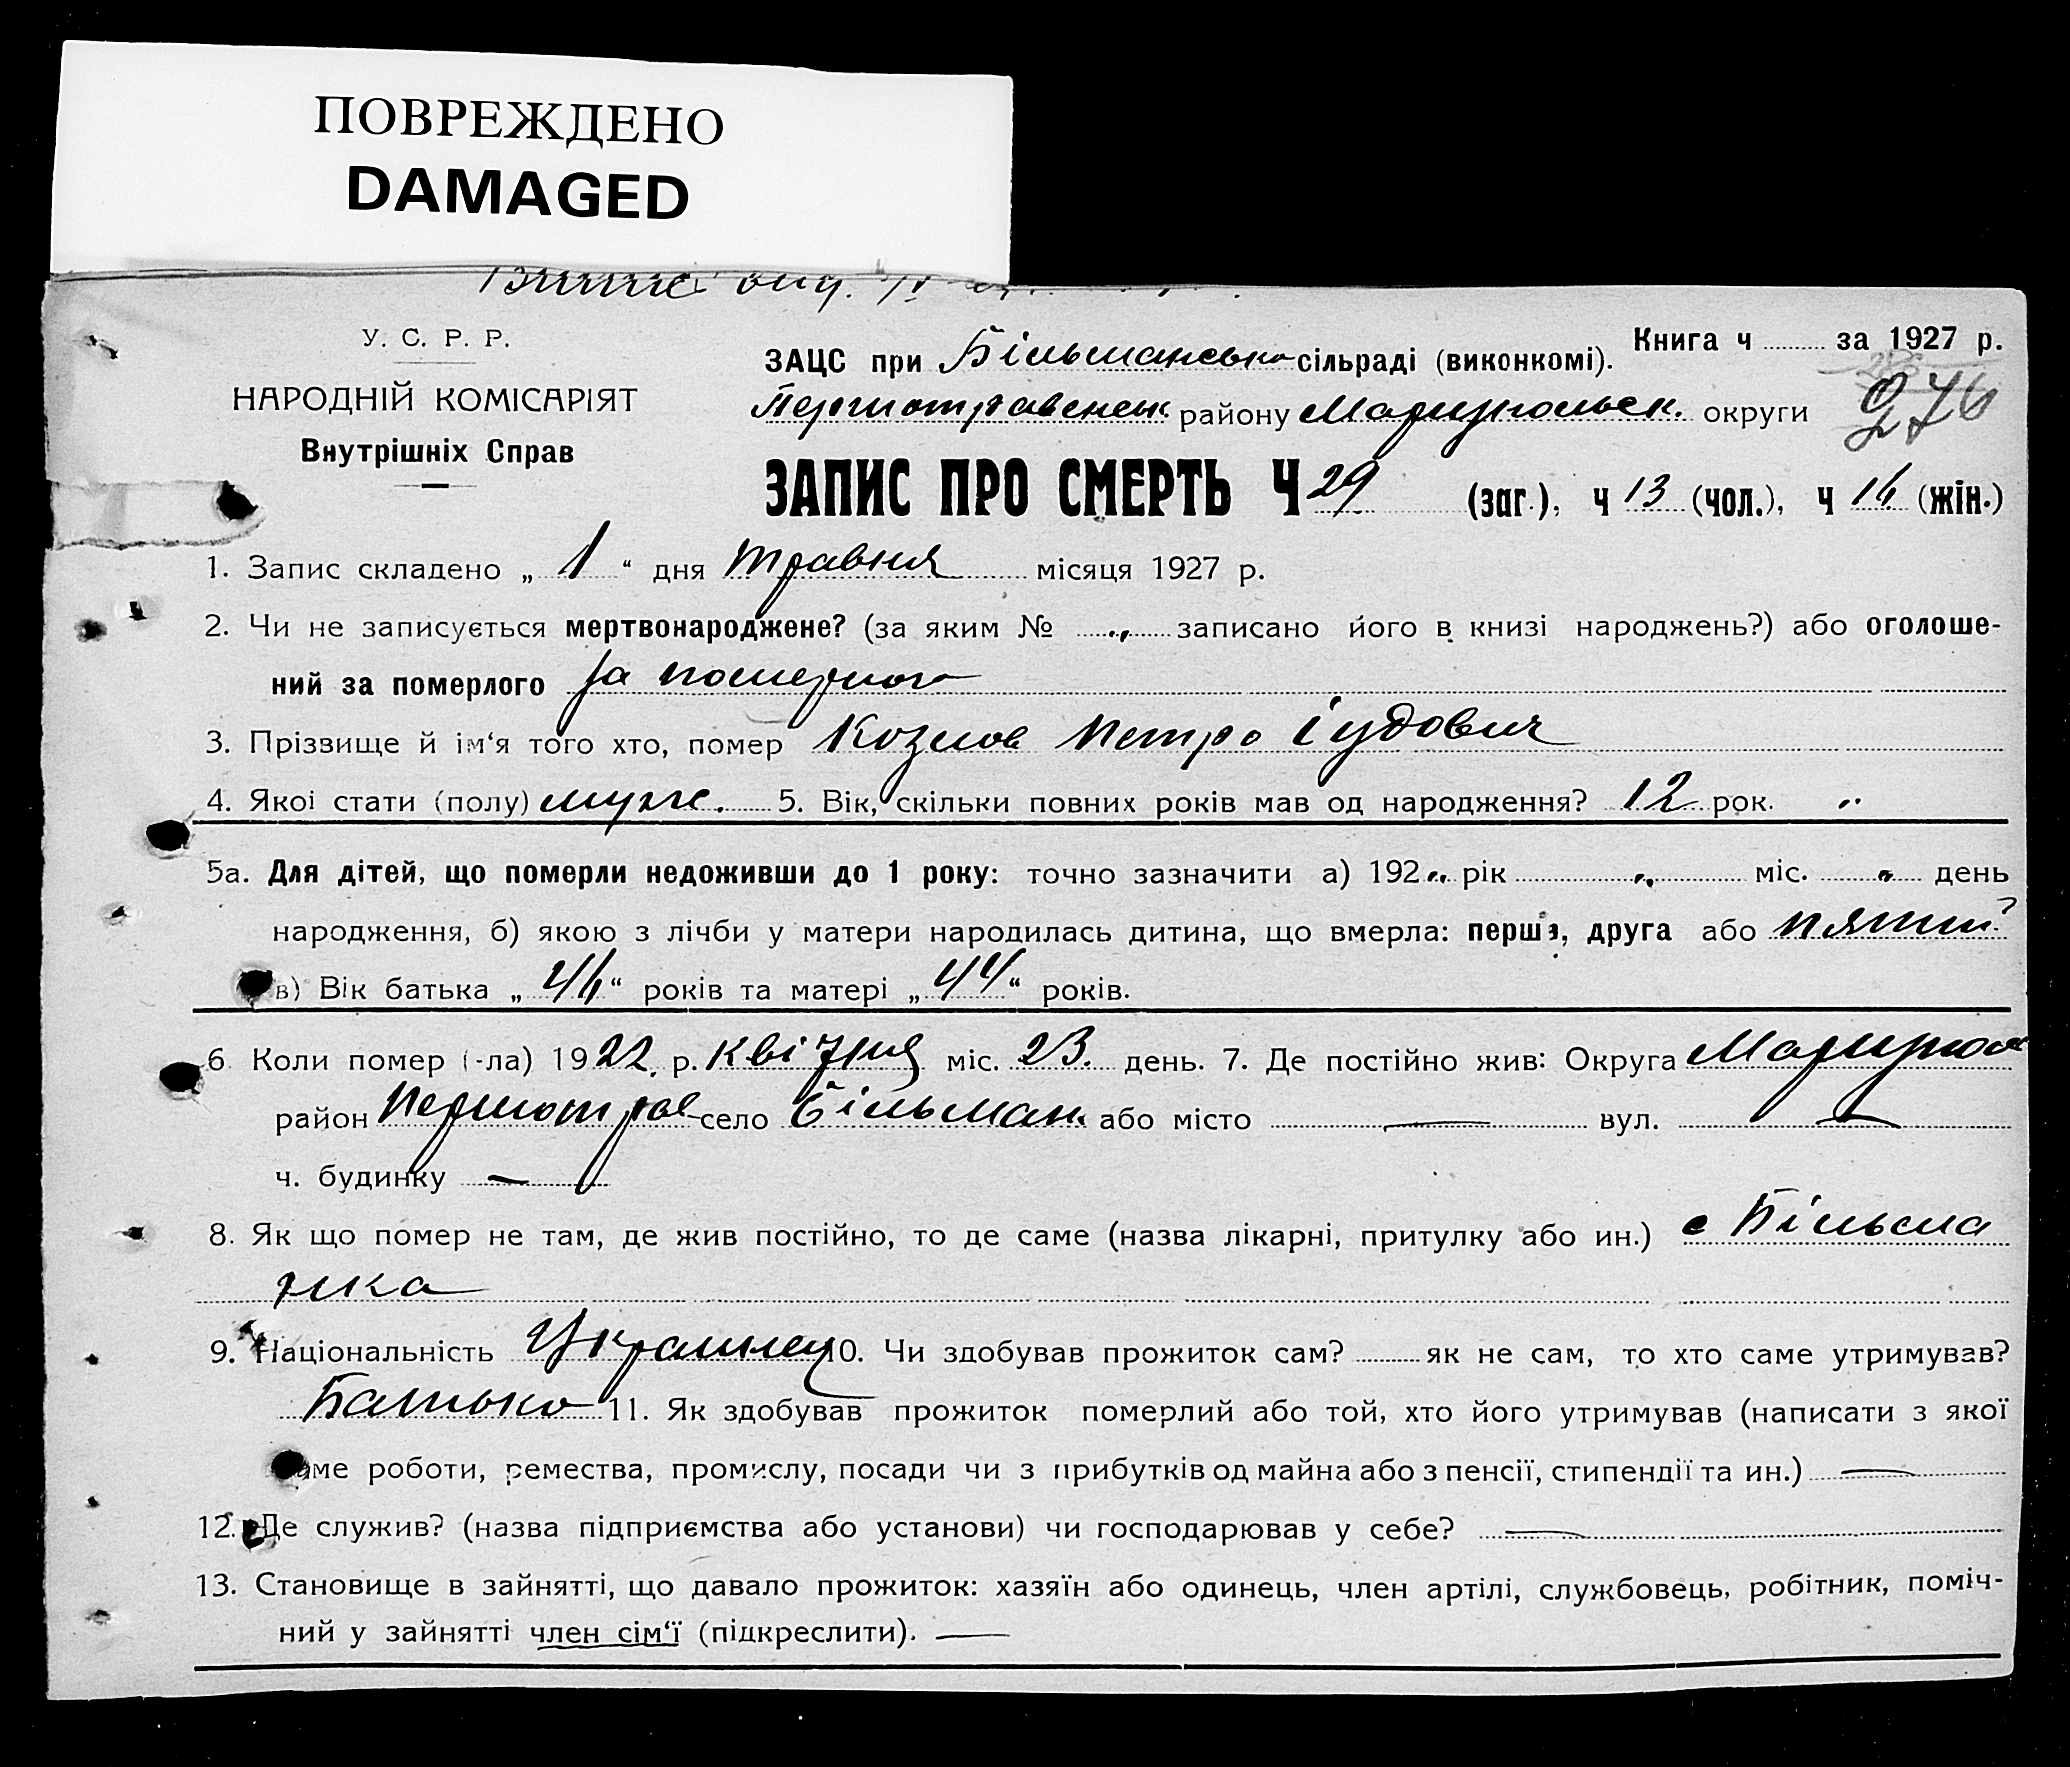 ПОВРЕЖДЕНО
DAMAGED
У. С. Р. Р.
НАРОДНІЙ КОМІСАРІЯТ
Внутрішніх Справ
Книга ч за 1927 р.
ЗАЦС при Більмансько сільраді (виконкомі).
276
Першотравенськ району Маріупольськ. округи
ЗАПИС ПРО СМЕРТЬ Ч 29 (заг.), ч 13 (чол.), ч 16 (жін.)
1. Запис складено „ 1 “ дня травня місяця 1927 р.
2. Чи не записується мертвонароджене? (за яким № „ записано його в книзі народжень?) або оголоше-
ний за померлого за померлого
3. Прізвище й ім‘я того хто, помер Козлов Петро Іудович
4. Якої стати (полу) мужс. 5. Вік, скільки повних років мав од народження? 12 рок. „
5а. Для дітей, що померли недоживши до 1 року: точно зазначити а) 192 „ рік „ міс. „ день
народження, б) якою з лічби у матери народилась дитина, що вмерла: перша, друга або пятии?
в) Вік батька „ 46 “ років та матері „ 44 “ років.
6 Коли помер (-ла) 1922. р. квітня міс. 23. день. 7. Де постійно жив: Округа Маріупол
район Першотрав село Більман. або місто — вул. —
ч. будинку —
8. Як що помер не там, де жив постійно, то де саме (назва лікарні, притулку або ин.) с Більма
нка
9. Національність Українец 10. Чи здобував прожиток сам? як не сам, то хто саме утримував?
Батько 11. Як здобував прожиток померлий або той, хто його утримував (написати з якої
саме роботи, ремества, промислу, посади чи з прибутків од майна або з пенсії, стипендії та ин.) —
12. Де служив? (назва підприємства або установи) чи господарював у себе? —
13. Становище в зайнятті, що давало прожиток: хазяїн або одинець, член артілі, службовець, робітник, поміч-
ний у зайнятті член сім‘ї (підкреслити). —